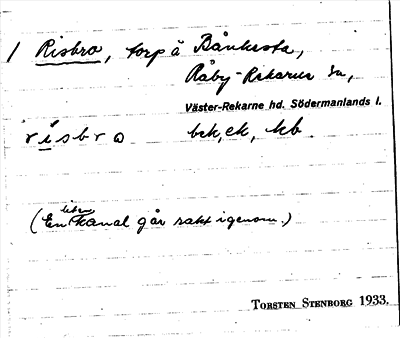 1 Risbro, torp å Bånkesta,
Råby-Rekarne sn,
Väster-Rekarne hd. Södermanlands l.
rìsbro bek, ek, kb.
(En liten kanal går rakt igenom.)
TORSTEN STENBORG 1933.